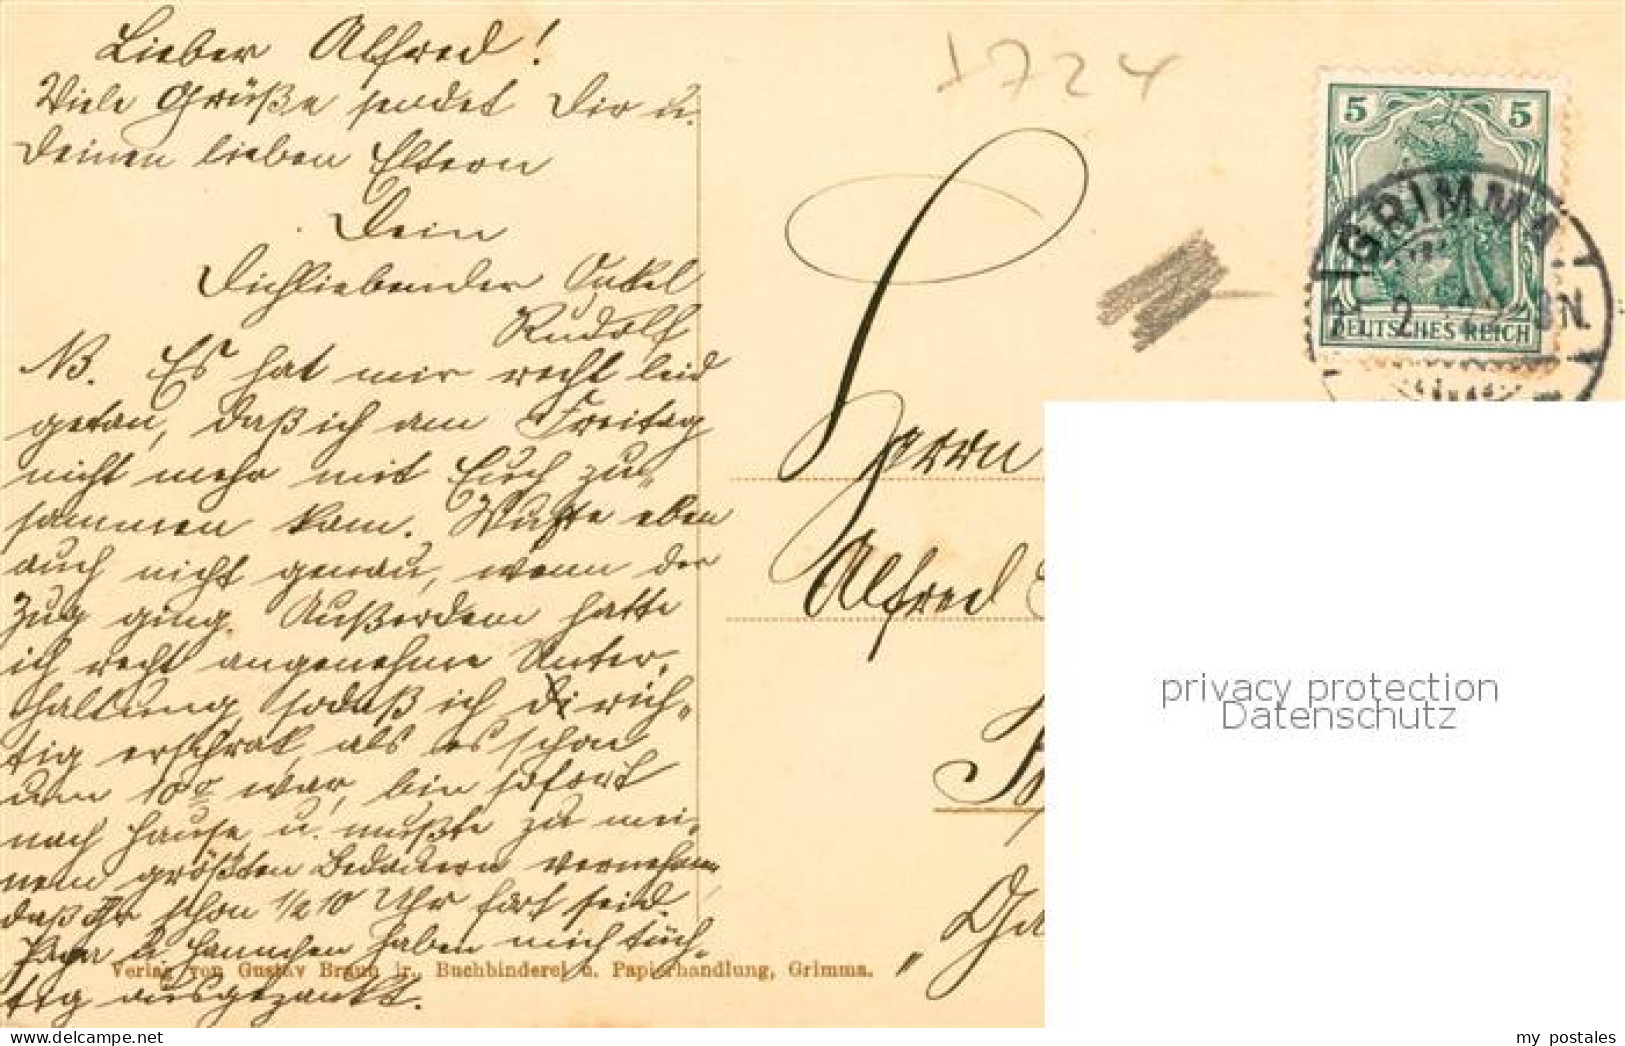 Lieber Alfred!
Viele Grüße sendet Dir u.
Deinen lieben Eltern
Dein
Dichliebender Onkel
Rudolf
NB. Es hat mir recht leid
getan, daß ich am Freitag
nicht mehr mit Euch zu-
sammen kam. Wußte eben
auch nicht genau, wenn der
Zug ging. Außerdem hatte
ich recht angenehme Unter-
haltung, sodaß ich rich-
tig erschrak, als es schon
um 10 war, bin sofort
nach Hause u. mußte zu mei-
nem größten Bedauern vernehmen
daß Ihr schon 1/2 10 Uhr fort seid.
Papa u. Hannchen haben mich tüch-
tig ausgezankt.
Verlag von Gustav Braun jr., Buchbinderei u. Papierhandlung, Grimma.
1724
5 5
DEUTSCHES REICH
GRIMMA
Herrn
Alfred
privacy protection
Datenschutz
my postales